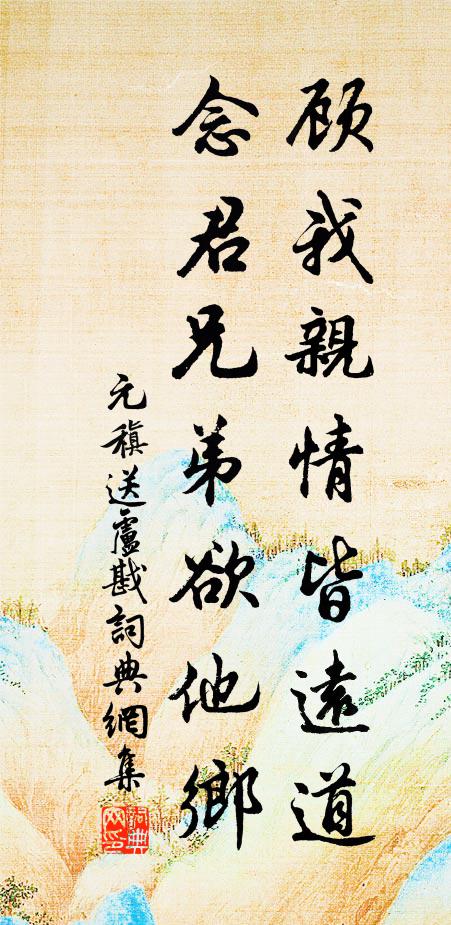 顾我親情皆遠道
念君兄弟欲他鄉
元稹送盧戡詞典網集
詞典网印